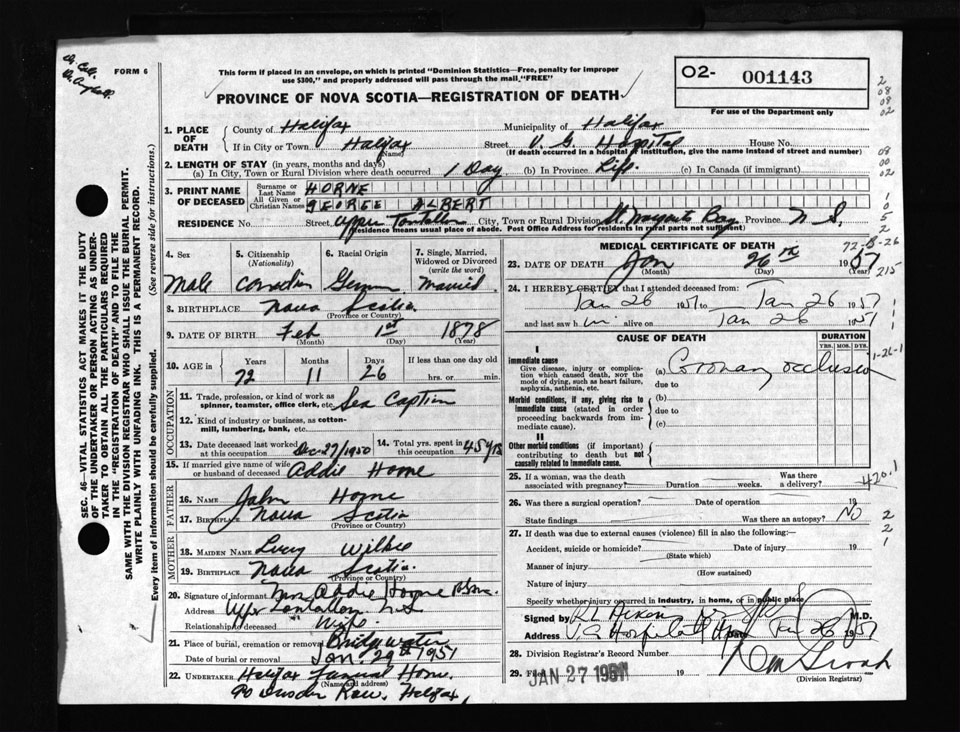 FORM 6
This form if placed in an envelope, on which is printed "Dominion Statistics—Free, penalty for improper
use $300," and properly addressed will pass through the mail, "FREE"
PROVINCE OF NOVA SCOTIA—REGISTRATION OF DEATH
O2- 001143
For use of the Department only
2
08
08
02
1. PLACE OF DEATH
County of Halifax Municipality of Halifax
If in City or Town Halifax Street V. G. Hospital House No.
(Name) (If death occurred in a hospital or institution, give the name instead of street and number)
2. LENGTH OF STAY (in years, months and days)
(a) In City, Town or Rural Division where death occurred 1 Day (b) In Province Life (c) In Canada (if immigrant)
08
00
02
3. PRINT NAME OF DECEASED
Surname or Last Name HORNE
All Given or Christian Names GEORGE ALBERT
RESIDENCE No. Street Upper Tantallon City, Town or Rural Division St. Margarets Bay Province N S.
(Residence means usual place of abode. Post Office Address for residents in rural parts not sufficient)
1
0
5
2
4. Sex Male
5. Citizenship (Nationality) Canadian
6. Racial Origin German
7. Single, Married, Widowed or Divorced (write the word) Married
8. BIRTHPLACE Nova Scotia
(Province or Country)
9. DATE OF BIRTH Feb 1st 1878
(Month) (Day) (Year)
10. AGE in Years Months Days If less than one day old
72 11 26 hrs. or min.
OCCUPATION
11. Trade, profession, or kind of work as
spinner, teamster, office clerk, etc. Sea Captain
12. Kind of industry or business, as cotton-
mill, lumbering, bank, etc.
13. Date deceased last worked at this occupation Dec-27/1950
14. Total yrs. spent in this occupation 45 yrs
15. If married give name of wife
or husband of deceased Addie Horne
FATHER
16. NAME John Horne
17. BIRTHPLACE Nova Scotia
(Province or Country)
MOTHER
18. MAIDEN NAME Lucy Wilkie
19. BIRTHPLACE Nova Scotia.
(Province or Country)
20. Signature of informant Mrs Addie Horne
Address Upr Tantallon N S
Relationship to deceased Wife
21. Place of burial, cremation or removal Bridgewater
Date of burial or removal Jan. 29th 1951
22. UNDERTAKER Halifax Funeral Home.
(Name and address)
90 Windsor Halifax
MEDICAL CERTIFICATE OF DEATH
72-8-26
23. DATE OF DEATH Jan 26th 1951
(Month) (Day) (Year)
215
24. I HEREBY CERTIFY that I attended deceased from:
Jan 26 1951 to Jan 26 1951
and last saw h im alive on Jan 26 1951
CAUSE OF DEATH DURATION
YRS. MOS. DYS.
1-26-1
I
Immediate cause
Give disease, injury or complica-
tion which caused death, not the
mode of dying, such as heart failure,
asphyxia, asthenia, etc.
(a) Coronary occlusion
due to
Morbid conditions, if any, giving rise to
immediate cause (stated in order
proceeding backwards from im-
mediate cause).
(b)
due to
(c)
II
Other morbid conditions (if important)
contributing to death but not
causally related to immediate cause.
25. If a woman, was the death Was there
associated with pregnancy? Duration weeks. a delivery?
420.1
26. Was there a surgical operation? Date of operation 19
State findings Was there an autopsy? No
2
2
1
27. If death was due to external causes (violence) fill in also:
Accident, suicide or homicide? Date of injury 19
(State which)
Manner of injury
(How sustained)
Nature of injury
Specify whether injury occurred in industry, in home, or in public place
Signed by M.D.
Address V G Hospital Date Jan 26 1951
28. Division Registrar's Record Number
29. Filed JAN 27 1951 19
(Division Registrar)
SEC. 46—VITAL STATISTICS ACT MAKES IT THE DUTY
OF THE UNDERTAKER OR PERSON ACTING AS UNDER-
TAKER TO OBTAIN ALL THE PARTICULARS REQUIRED
IN THE "REGISTRATION OF DEATH" AND TO FILE THE
SAME WITH THE DIVISION REGISTRAR WHO SHALL ISSUE THE BURIAL PERMIT.
WRITE PLAINLY WITH UNFADING INK. THIS IS A PERMANENT RECORD.
Every item of information should be carefully supplied. (See reverse side for instructions.)